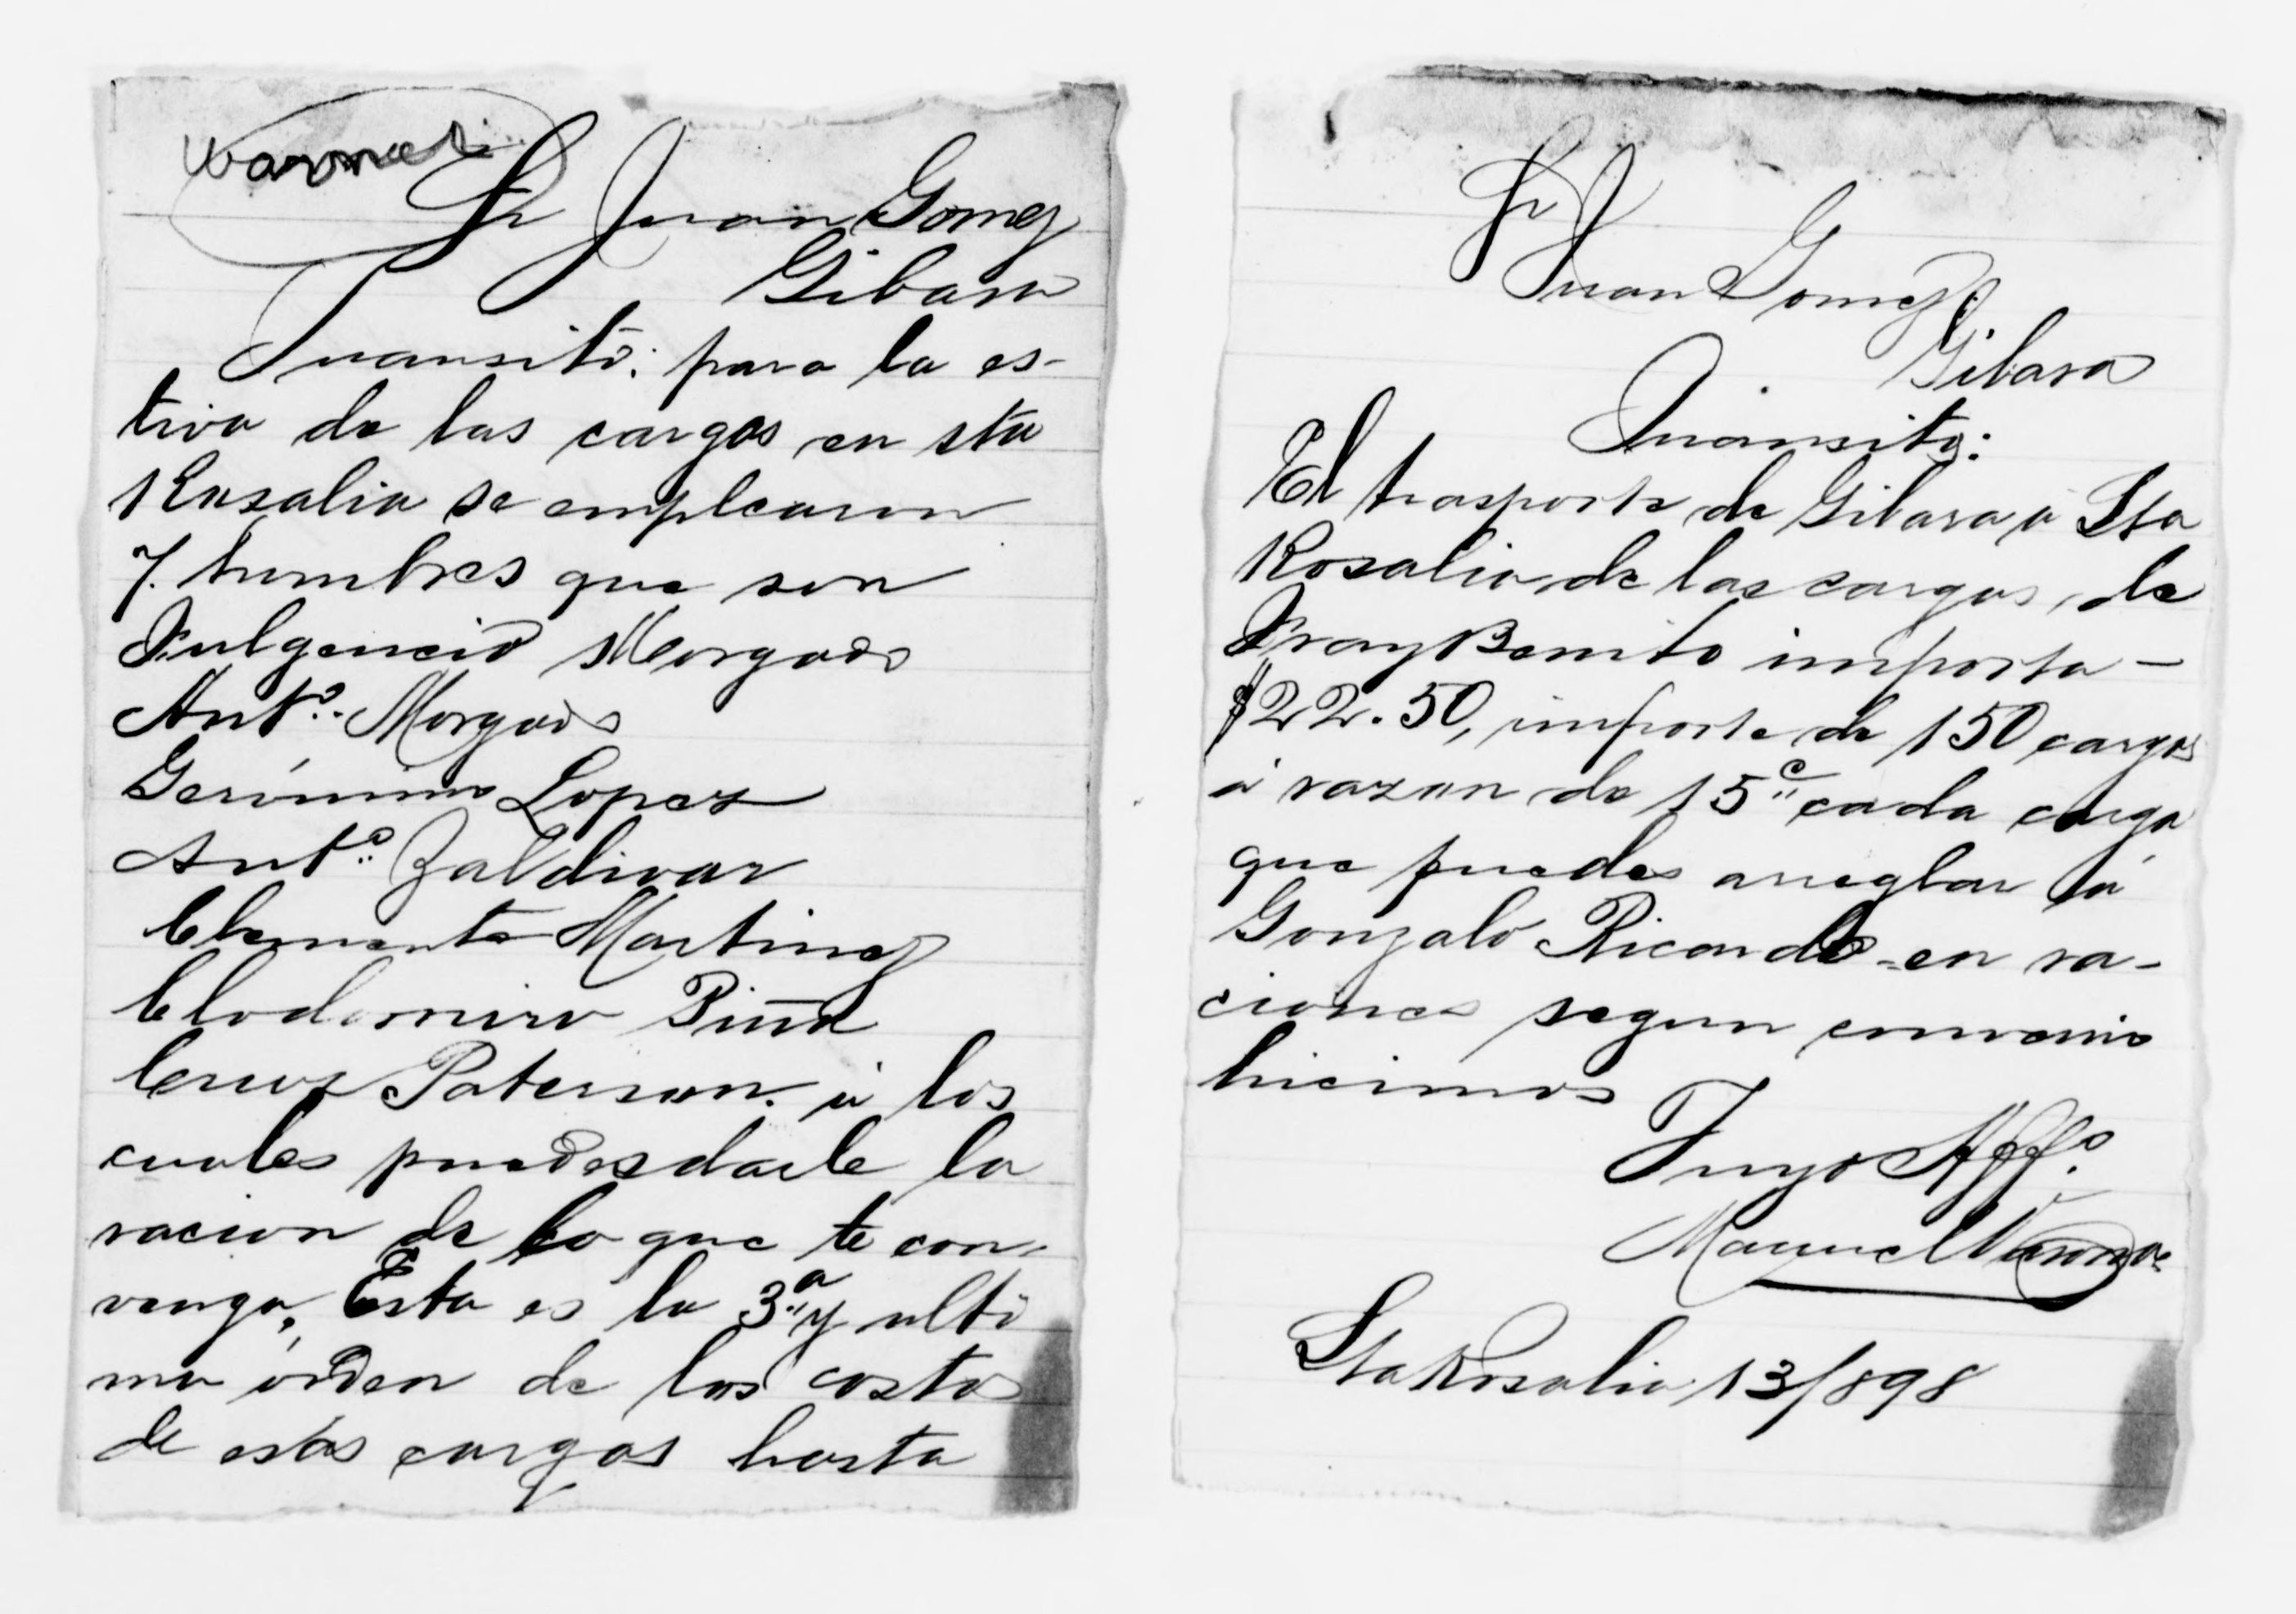 Sr Juan Gomez
Gibara
Juansito: para la es-
tiva de las cargas en sta
Rosalia se emplearon
7. hombres que son
Fulgencio Morgado
Antº. Morgado
Gerónimo Lopez
Antº. Zaldivar
Clemente Martinez
Clodomiro Piña
Cruz Paterson. á los
cuales puedes darle la
racion de lo que te con-
venga. Esta es la 3ª y ulti
ma órden de los costos
de estas cargas hasta
Sr
Juan Gomez
Gibara
Juansito:
El trasporte de Gibara á Sta
Rosalia de las cargas, de
Fray Benito importa -
$22.50, importe de 150 cargas
á razon de 15c cada carga
que puedes arreglar á
Gonzalo Ricardo en ra-
ciones segun convenio
hicimos
Tuyo Affº.
Manuel
Sta Rosalia 13/898